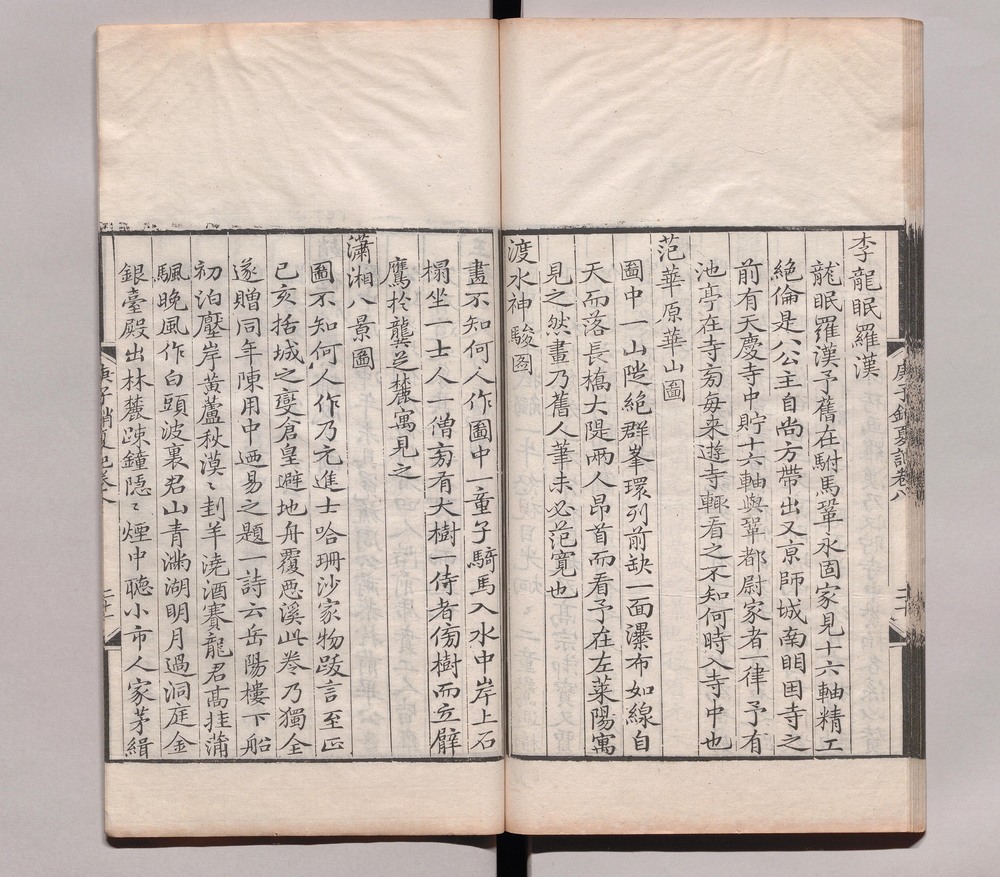 李龍眠羅漢
龍眠羅漢予舊在駙馬鞏永固家見十六軸精工
絶倫是八公主自尚方帶出又京師城南明因寺之
前有天慶寺中貯十六軸與鞏都尉家者一律予有
池亭在寺旁每来遊寺輒看之不知何時入寺中也
范華原華山圖
圖中一山陡絶群峯環列前缺一面瀑布如線自
天而落長橋大隄兩人昂首而看予在左萊陽寓
見之然畫乃舊人筆未必范寛也
渡水神駿圖
畫不知何人作圖中一童子騎馬入水中岸上石
榻坐一士人一僧旁有大樹一侍者傍樹而立臂
鷹於龔芝麓寓見之
瀟湘八景圖
圖不知何人作乃元進士哈珊沙家物跋言至正
已亥括城之變倉皇避地舟覆惡溪此卷乃獨全
遂贈同年陳用中廼易之題一詩云岳陽樓下船
初泊壓岸黄蘆秋漠〻刲羊澆酒賽龍君髙挂蒲
颿晚風作白頭波裏君山青滿湖明月過洞庭金
銀臺殿出林麓疎鐘隠〻煙中聴小市人家茅緝
庚子銷夏記卷八